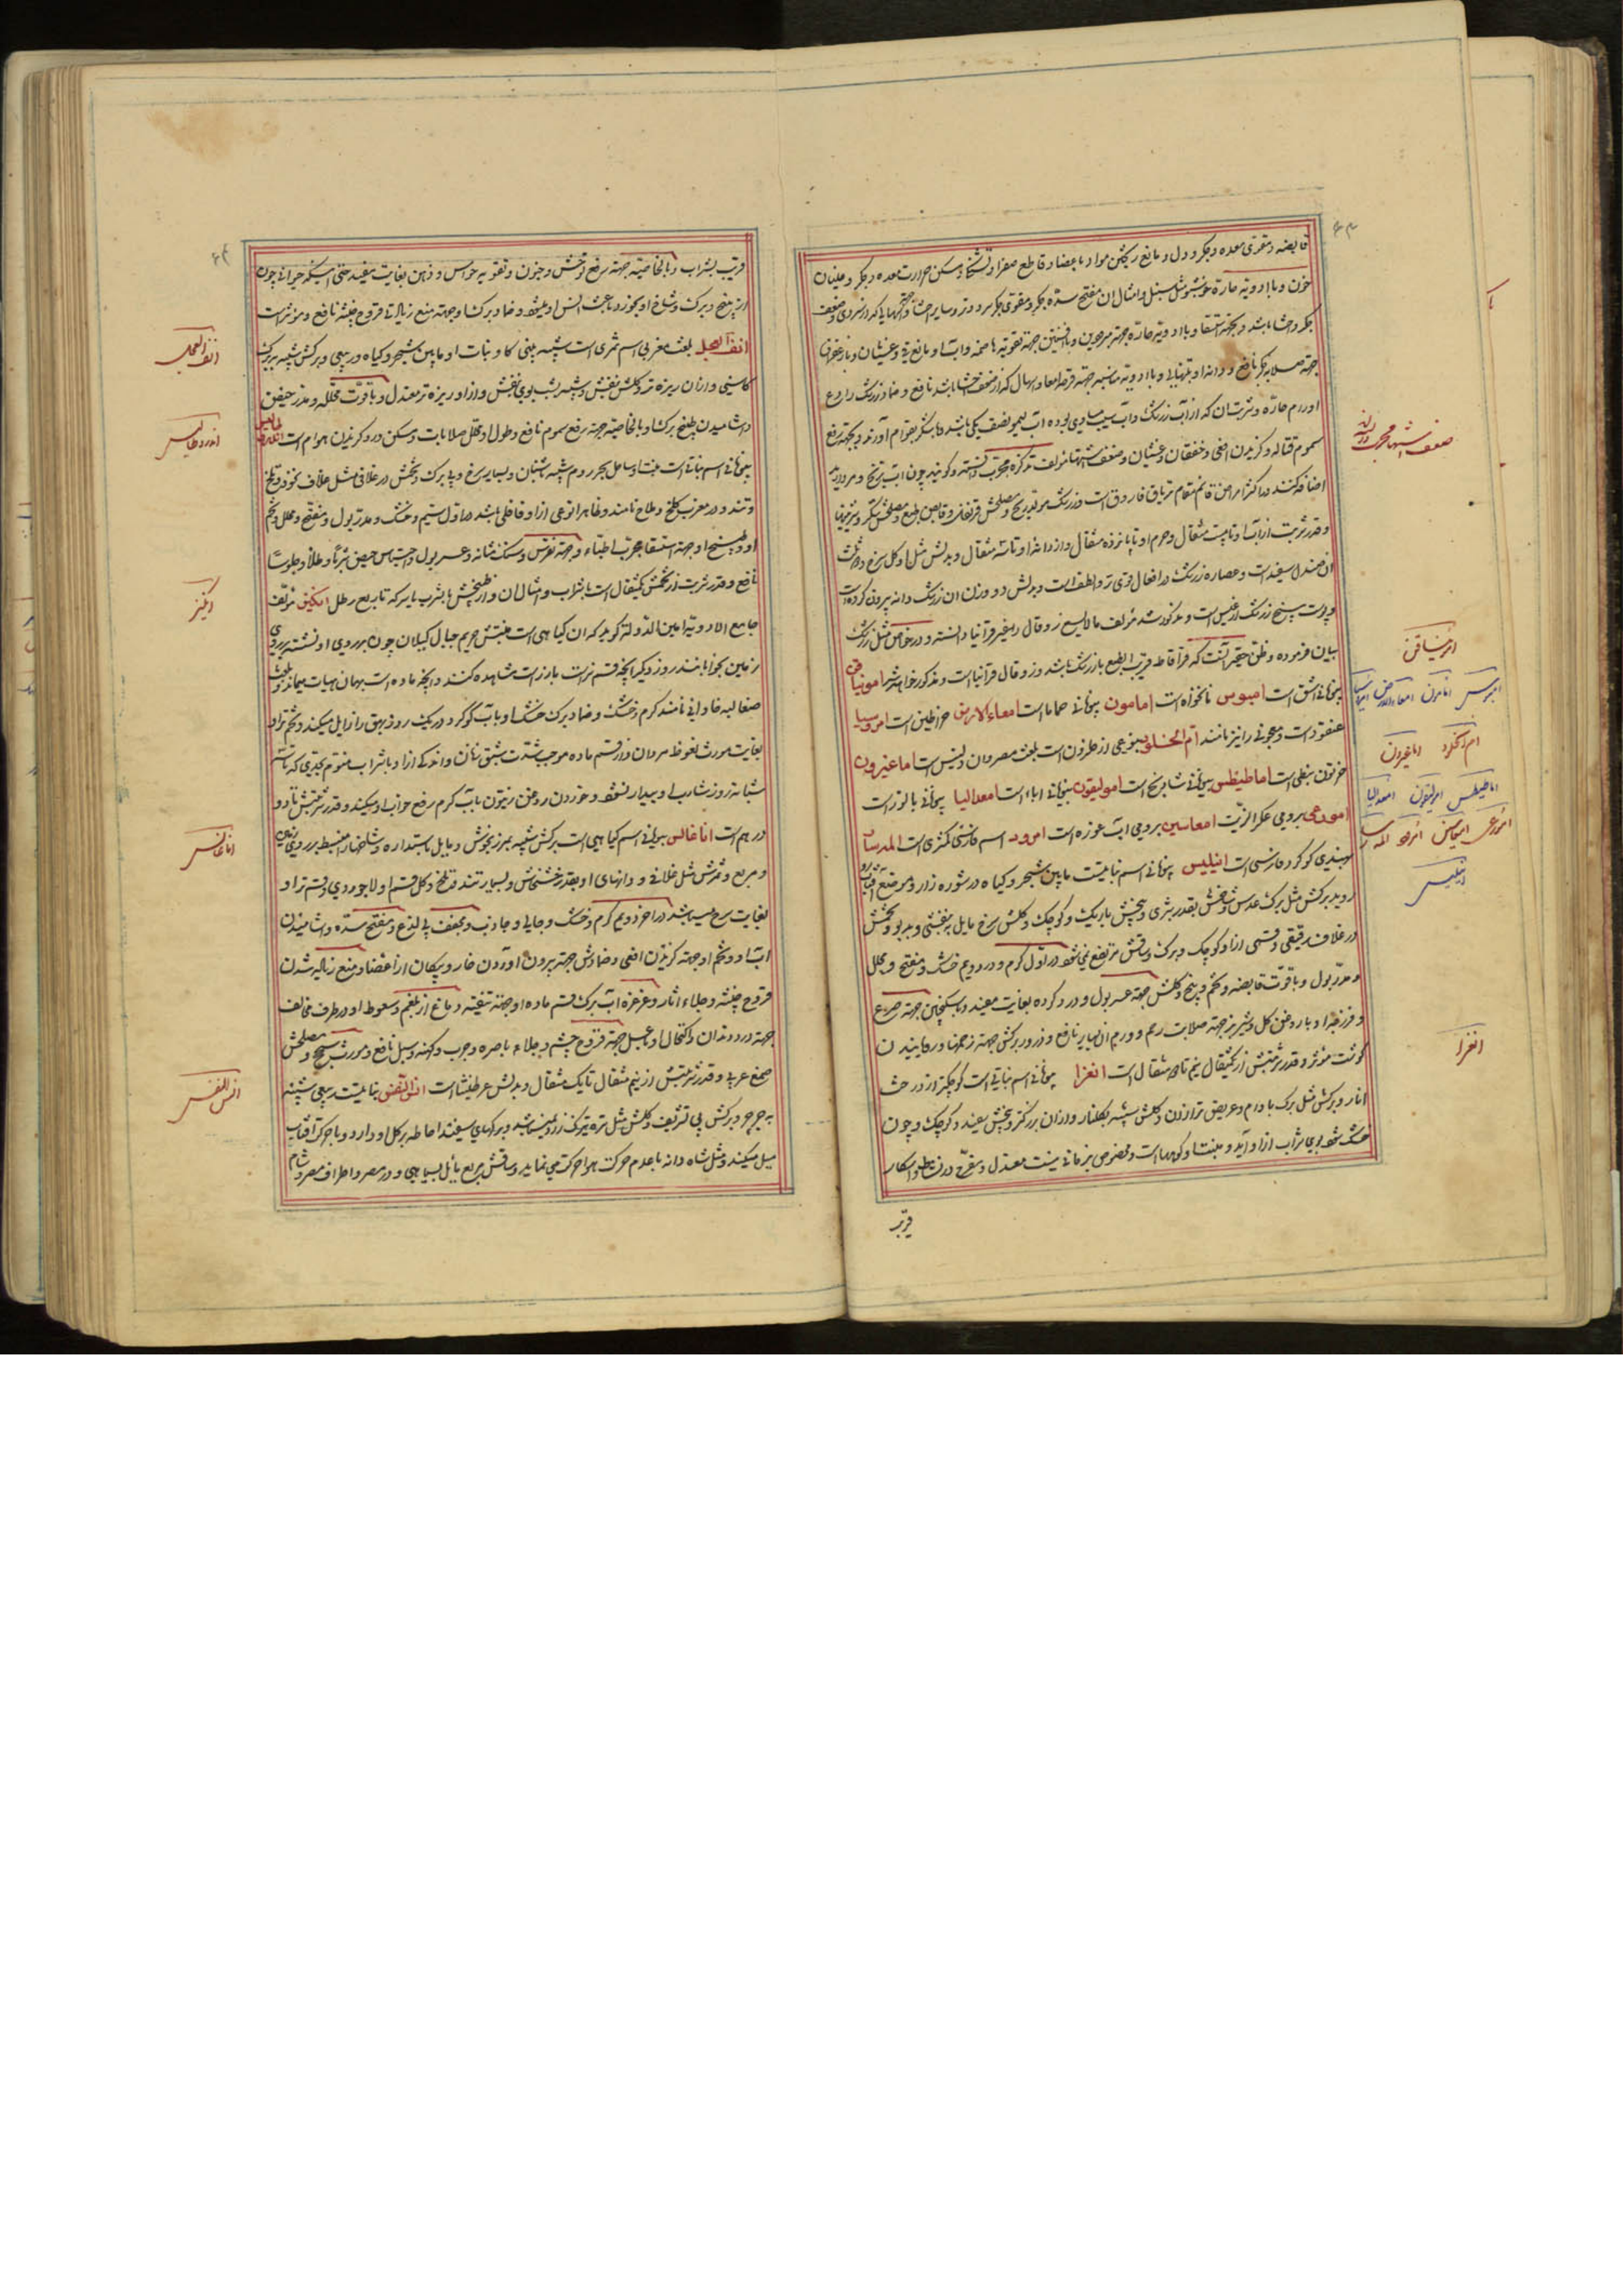 قابضه و مقوی معده و جگر و دل و مانع ریختن مواد باعضا و قاطع صفرا و تشنگی و مسکن حرارت معده و جگر و غلیان
خون و با ادویه حاره خوشبو مثل سنبل و امثال ان مفتح سده جگر و مقوی جگر سرد و
جگر و احشا باشد و بجهة استسقا و با ادویه حاره جهة و با افسنتین جهة تقویة هاضمه و آب او مانع قی و غثیان و با زعفران
جهة صلابه جگر نافع و دانه او بتنهایی و با ادویه مناسبه جهة قرحه امعا و اسهال که از ضعف احشا باشد نافع و ضماد زرشک رادع
اورام حاره و شربت ان که از آب زرشک و آب سیب مساوی بوده اب لیمو نصف یکی باشد و با شکر بقوام آورند و بجهة رفع
سموم قتاله و گزیدن افعی و خفقان و غثیان و ضعف اشتها مؤلف تذکره مجرب دانسته و گوید چون اب ترنج و مروارید
اضافه کنند در اکثر امراض قائم مقام تریاق فاروق است و زرشک مولد ریح و مصلحش قرنفل و قابض طبع و مصلحش شکر و شیرینیها
و قدر شربت از آب او تا بیست مثقال و جرم او تا پانزده مثقال و از دانه او تا سه مثقال و بدلش مثل او گل سرخ و دو ثلث
ان صندل سفید است و عصاره زرشک در افعال قوی تر و الطف است و بدلش دو وزن ان زرشک دانه بیرون کرده است
و پوست بیخ زرشک ارغیس است و مذکور شد مؤلف مالایسع زوفال را غیر قرانیا دانسته و در خواص مثل زرشک
بیان فرموده و ظن حقیر آنست که قراقاطه قریب الطبع بازرشک باشد و زوفال قرانیا است و مذکور خواهد شد امونیاقن
بیونانی اشق است امبوس نانخواه است امامون بیونانی حماما است امعاء الارض خراطین است امروسیا
عنقود است و معجونی را نیز نامند ام الخلول نوعی از حلزون است بلغت مصر و ان دلینس است اماغیرون
خرنوب نبطی است اماطیطس بیونانی شادنج است امولیقون بیونانی اباء است امعدالیا بیونانی بالوز است
امورعی برومی عکر الزیت امعاسین برومی اب غوره است امرود اسم فارسی کمثری است المدسار
بهندی کوکرد فارسی است انیلیس بیونانی اسم نباتیست مابین شجر و گیاه در شوره زار و موضع آفتاب رو
روید برگش مثل برگ عدس و شاخش بقدر شبری و بیخش باریک و کوچک و گلش سرخ مایل ببنفشی و بدبو و تخمش
در غلاف رقیقی و قسمی از او کوچک و برگ و ساقش مرتفع نمیشود در اول گرم و در دویم خشک و مفتح و محلل
و مدر بول و با قوت قابضه و تخم و بیخ و گلش جهة عسر بول و درد گرده بغایت مفید و با سکنجبین جهة صرع
و فرزجه او با روغن گل و شیر بز جهة صلابت رحم و ورم ان بسیار نافع و ذرور برگش جهة زخمها و رویانیدن
گوشت مؤثر و قدر شربتش از یکمثقال و نیم تا دو مثقال است انغزا بیونانی اسم نباتی است کوچکتر از درخت
انار و برگش مثل برگ بادام و عریض تر از ان و گلش شبیه بگلنار و از ان بزرگتر و بیخش سفید و کوچک و چون
خشک شود بوی شراب از او آید و منبت او کوهها است و مخصوص بزمانی نیست معتدل و مفرح و در نشاط و اسکار
قریب
ضعف اشتها مجرب
امونیاقن
امبوس امامون امعاء الارض امروسیا
ام الخلول اماغیرون
اماطیطس امولیقون امعدالیا
امورعی امعاسین امرود المدسار
انیلیس
انغزا
قریب بشراب و بالخاصیة جهة رفع توحش و جنون و تقویه حواس و ذهن بغایت مفید حتی اینکه حیوانی چون
از بیخ و برگ و شاخ او بخورد باعث انس او میشود و ضماد برگ او جهة منع زیاده قروح خبیثه نافع و مؤثر است
انف العجل بلغت مغربی اسم ثمری است شبیه ببینی گاو و نبات او مابین شجر و گیاه و ربیعی و برگش شبیه ببرگ
کاسنی و از ان ریزه تر و گلش بنفش و شبیه بشب بوی بنفش و از او ریزه تر معتدل و با قوت محلله و مدر حیض
و اشامیدن طبیخ برگ او بالخاصیة جهة رفع سموم نافع و طول او محلل صلابات و مسکن درد گزیدن هوام است اندروطالیس
بیونانی اسم نباتی است منبت او ساحل بحر روم شبیه باشنان و بسیار سرخ و بی برگ و تخمش در غلافی مثل غلاف نخود و تلخ
و تند و در مغرب کلخ و ملاح نامند و ظاهرا نوعی از او قاقلی باشد در اول سیم و خشک و مدر بول و مفتح و محلل و تخم
او و طبیخ او جهة استسقا مجرب اطباء و جهة نقرس و سنگ مثانه و عسر بول و احتباس حیض شربا و طلاء و جلوسا
نافع و قدر شربت از تخمش یکمثقال است با شراب و امثال ان و از طبیخش با شراب یا سرکه تا ربع رطل انکیز مؤلف
جامع الادویه امین الدوله گوید که ان گیاهی است منبتش حریم جبال گیلان چون بر روی او نشسته بر روی
زمین بخوابانند روز دیگر انچه قسم نر است بارز است مشاهده کنند و انچه ماده است بهمان هیات بماند و بلغت
صقالبه خاوانی نامند گرم و خشک و ضماد برگ خشک او با آب گوگرد در یک روز بهق را زایل میکند و تخم نر او
بغایت مورث نعوظ مردان و از قسم ماده موجب شدت شبق زنان و اندکی از او با شراب منوم بحدی که تا سه
شبانه روز شارب او بیدار نشود و خوردن روغن زیتون با آب گرم رفع خواب او میکند و قدر شربتش تا دو
درهم است اناغالس بیونانی اسم گیاهی است برگش شبیه بمرزنجوش و مایل باستداره و شاخها منبسط بر روی زمین
و مربع و ثمرش مثل غلافی و دانهای او بقدر خشخاش و بسیار تند و تلخ و گل قسم او لاجوردی و قسم نر او
بغایت سرخ میباشد در اخر دویم گرم و خشک و جالی و جاذب و مجفف بی لذع و مفتح سده و اشامیدن
آب او و تخم او جهة گزیدن افعی و ضمادش جهة بیرون اوردن خار و پیکان از اعضا و منع زیاده شدن
قروح خبیثه و جلاء اثار و غرغره آب برگ قسم ماده او جهة تنقیه دماغ از بلغم و سعوط او در طرف مخالف
جهة درد دندان و اکتحال او با عسل جهة قروح چشم و جلاء باصره و جرب و کهنه و سبل نافع و مورث سحج و مصلحش
صمغ عربی و قدر شربتش از نیم مثقال تا یک مثقال و بدلش عرطنیثا است انس النفس نباتیست ربیعی شبیه
به جرجیر و برگش بی تشریف و گلش مثل تره تیزک زرد میباشد و برگهای سفید احاطه بر گل او دارد و با حرکت آفتاب
میل میکند و مثل شاه دانه با عدم حرکت هوا حرکت می نماید و ساقش مربع مایل بسیاهی و در مصر و اطراف مصر و شام
انف العجل
اندروطالیس
انکیز
اناغالس
انس النفس